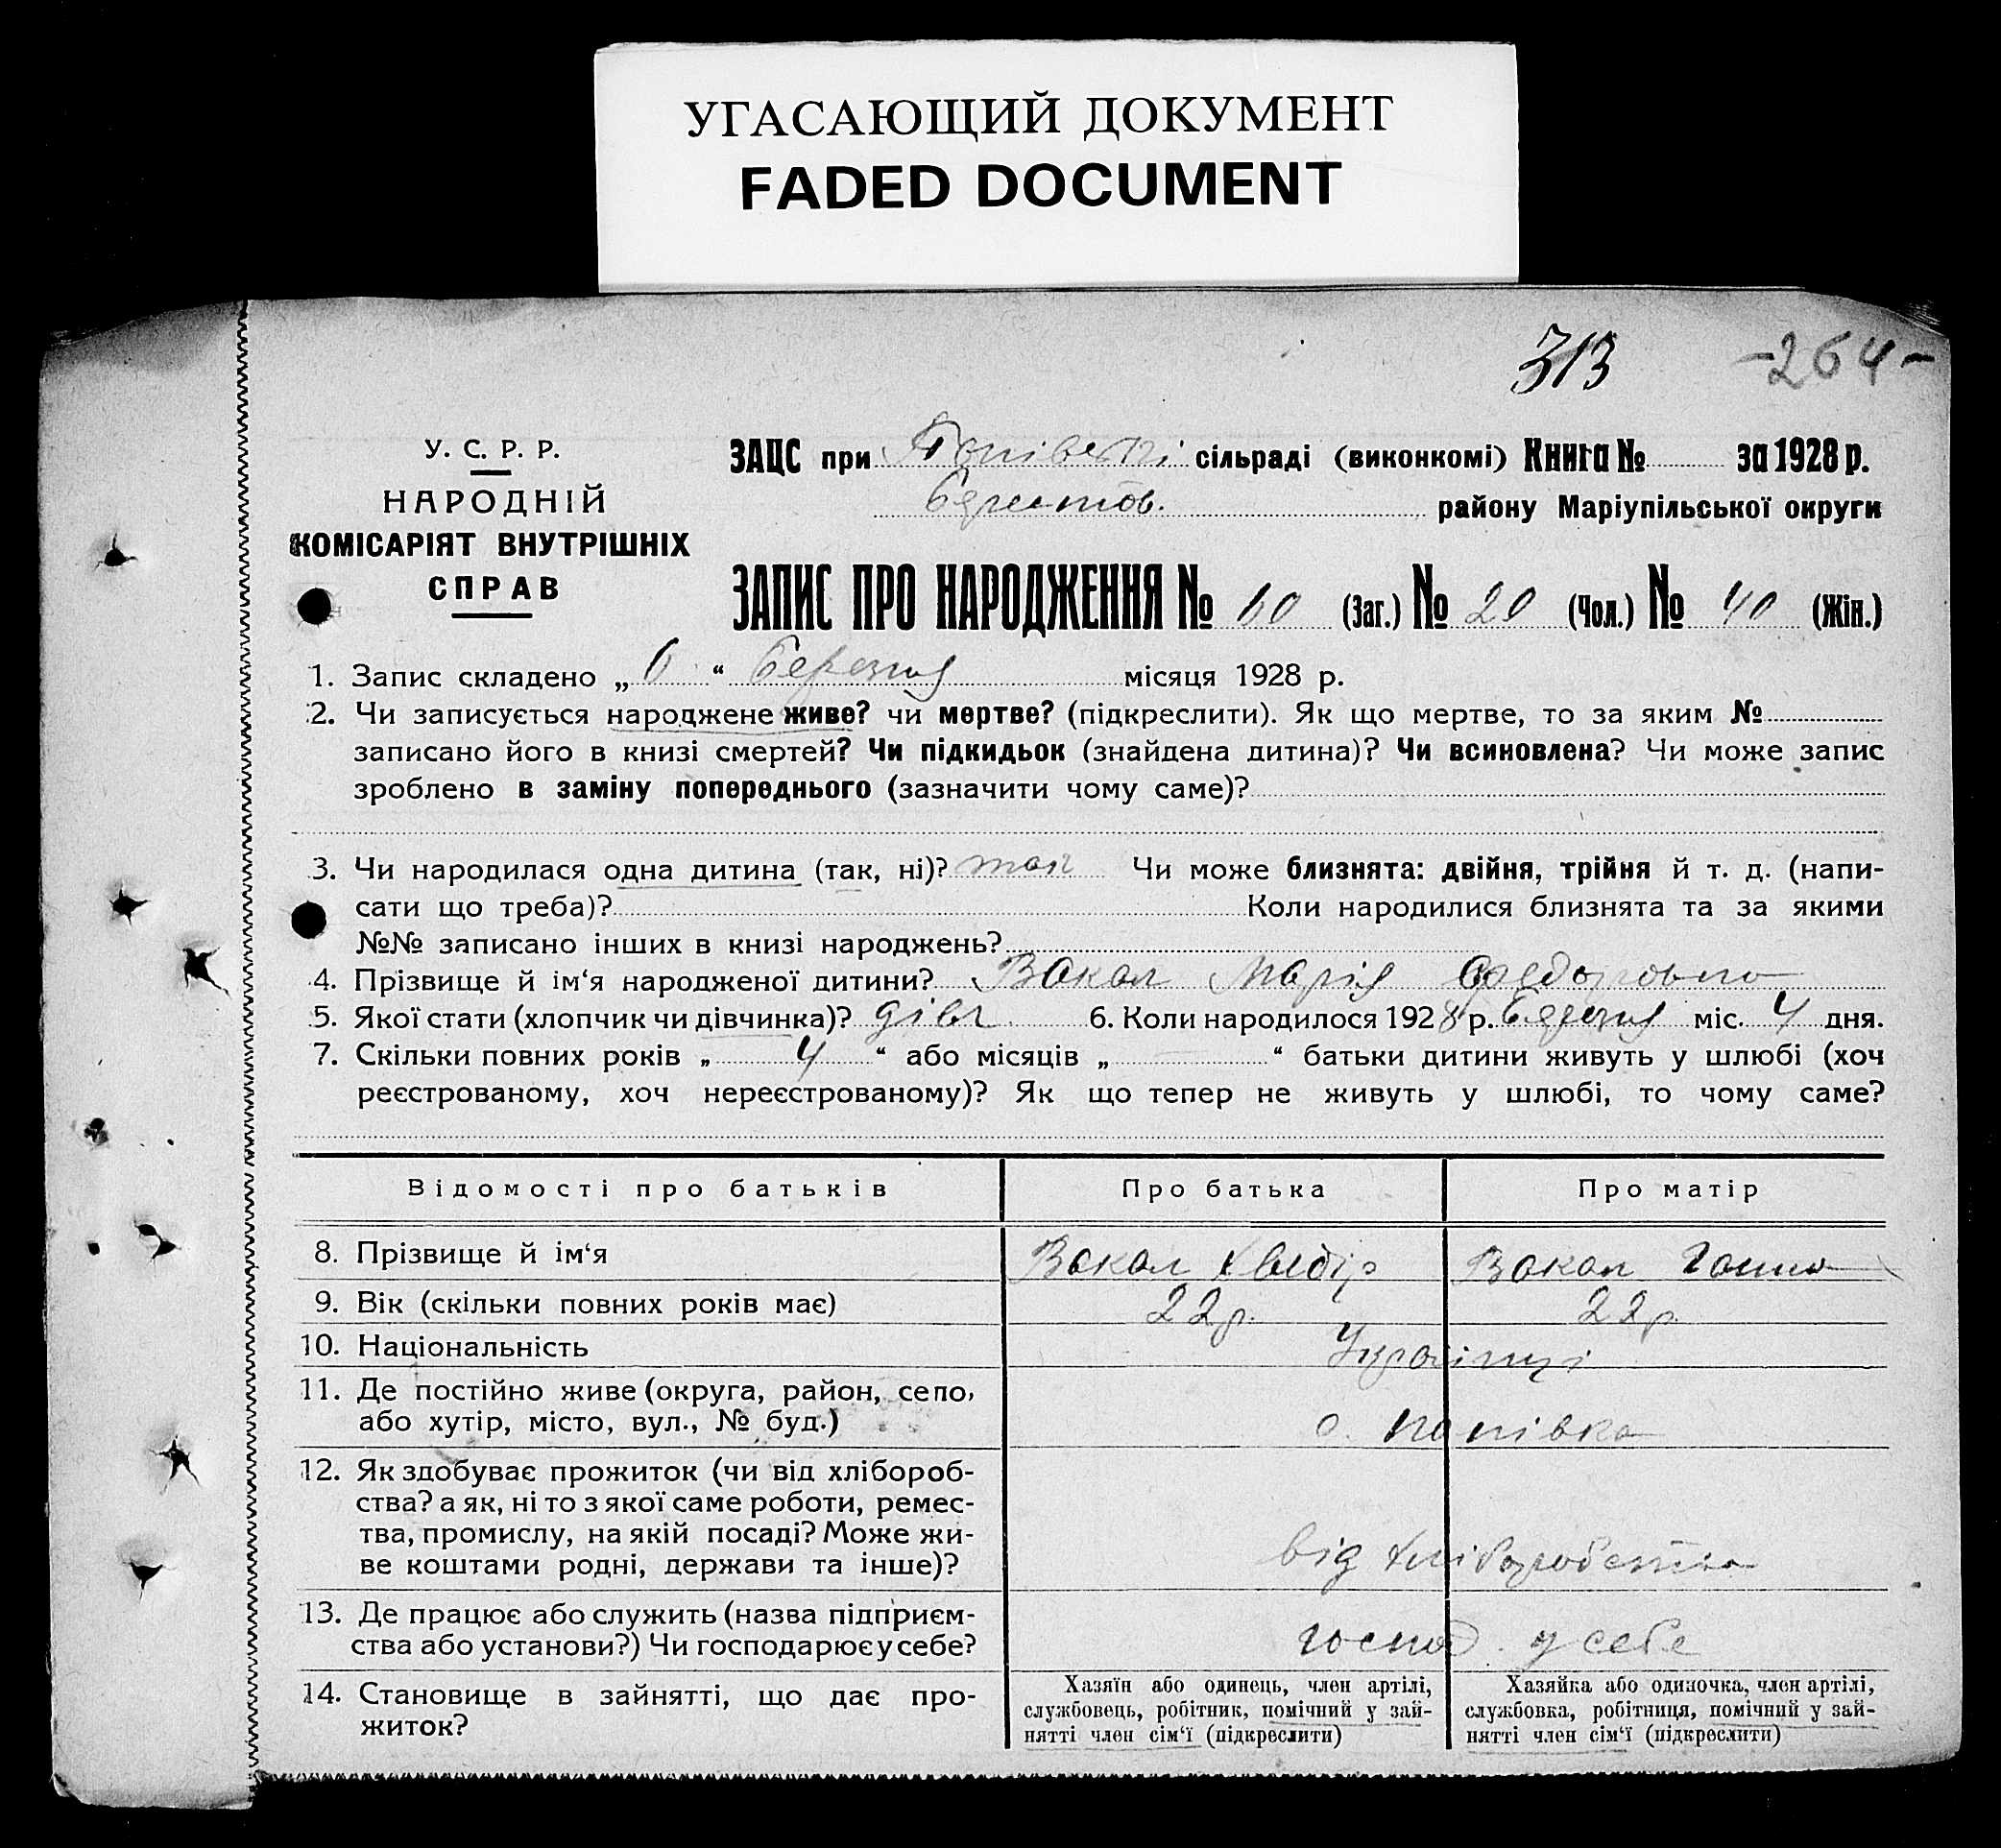 УГАСАЮЩИЙ ДОКУМЕНТ
FADED DOCUMENT
313 -264-
У. С. Р. Р.
НАРОДНІЙ
КОМІСАРІЯТ ВНУТРІШНІХ
СПРАВ
ЗАЦС при Попівській сільраді (виконкомі) Книга № за 1928 р.
Берестов. району Маріупільської округи
ЗАПИС ПРО НАРОДЖЕННЯ № 60 (Заг.) № 20 (Чол.) № 40 (Жін.)
1. Запис складено „ 6 “ березня місяця 1928 р.
2. Чи записується народжене живе? чи мертве? (підкреслити). Як що мертве, то за яким №
записано його в книзі смертей? Чи підкидьок (знайдена дитина)? Чи всиновлена? Чи може запис
зроблено в заміну попереднього (зазначити чому саме)?
3. Чи народилася одна дитина (так, ні)? так Чи може близнята: двійня, трійня й т. д. (напи-
сати що треба)? Коли народилися близнята та за якими
№№ записано інших в книзі народжень?
4. Прізвище й ім‘я народженої дитини? Вакал Марія
5. Якої стати (хлопчик чи дівчинка)? дівч 6. Коли народилося 1928 р. березня міс. 4 дня.
7. Скільки повних років „ 4 “ або місяців „ “ батьки дитини живуть у шлюбі (хоч
реєстрованому, хоч нереєстрованому)? Як що тепер не живуть у шлюбі, то чому саме?
Відомості про батьків Про батька Про матір
8. Прізвище й ім‘я Вакал Хведір Вакал Ганна
9. Вік (скільки повних років має) 22 р. 22 р.
10. Національність Українці
11. Де постійно живе (округа, район, село,
або хутір, місто, вул., № буд.) с. Попівка
12. Як здобуває прожиток (чи від хлібороб-
ства? а як, ні то з якої саме роботи, ремес-
тва, промислу, на якій посаді? Може жи-
ве коштами родні, держави та інше)? від хліборобства
13. Де працює або служить (назва підприєм-
ства або установи?) Чи господарює у себе? господ. у себе
14. Становище в зайнятті, що дає про-
житок?
Хазяїн або одинець, член артілі,
службовець, робітник, помічний у зай-
нятті член сім‘ї (підкреслити)
Хазяйка або одиночка, член артілі,
службовка, робітниця, помічний у зай-
нятті член сім‘ї (підкреслити)